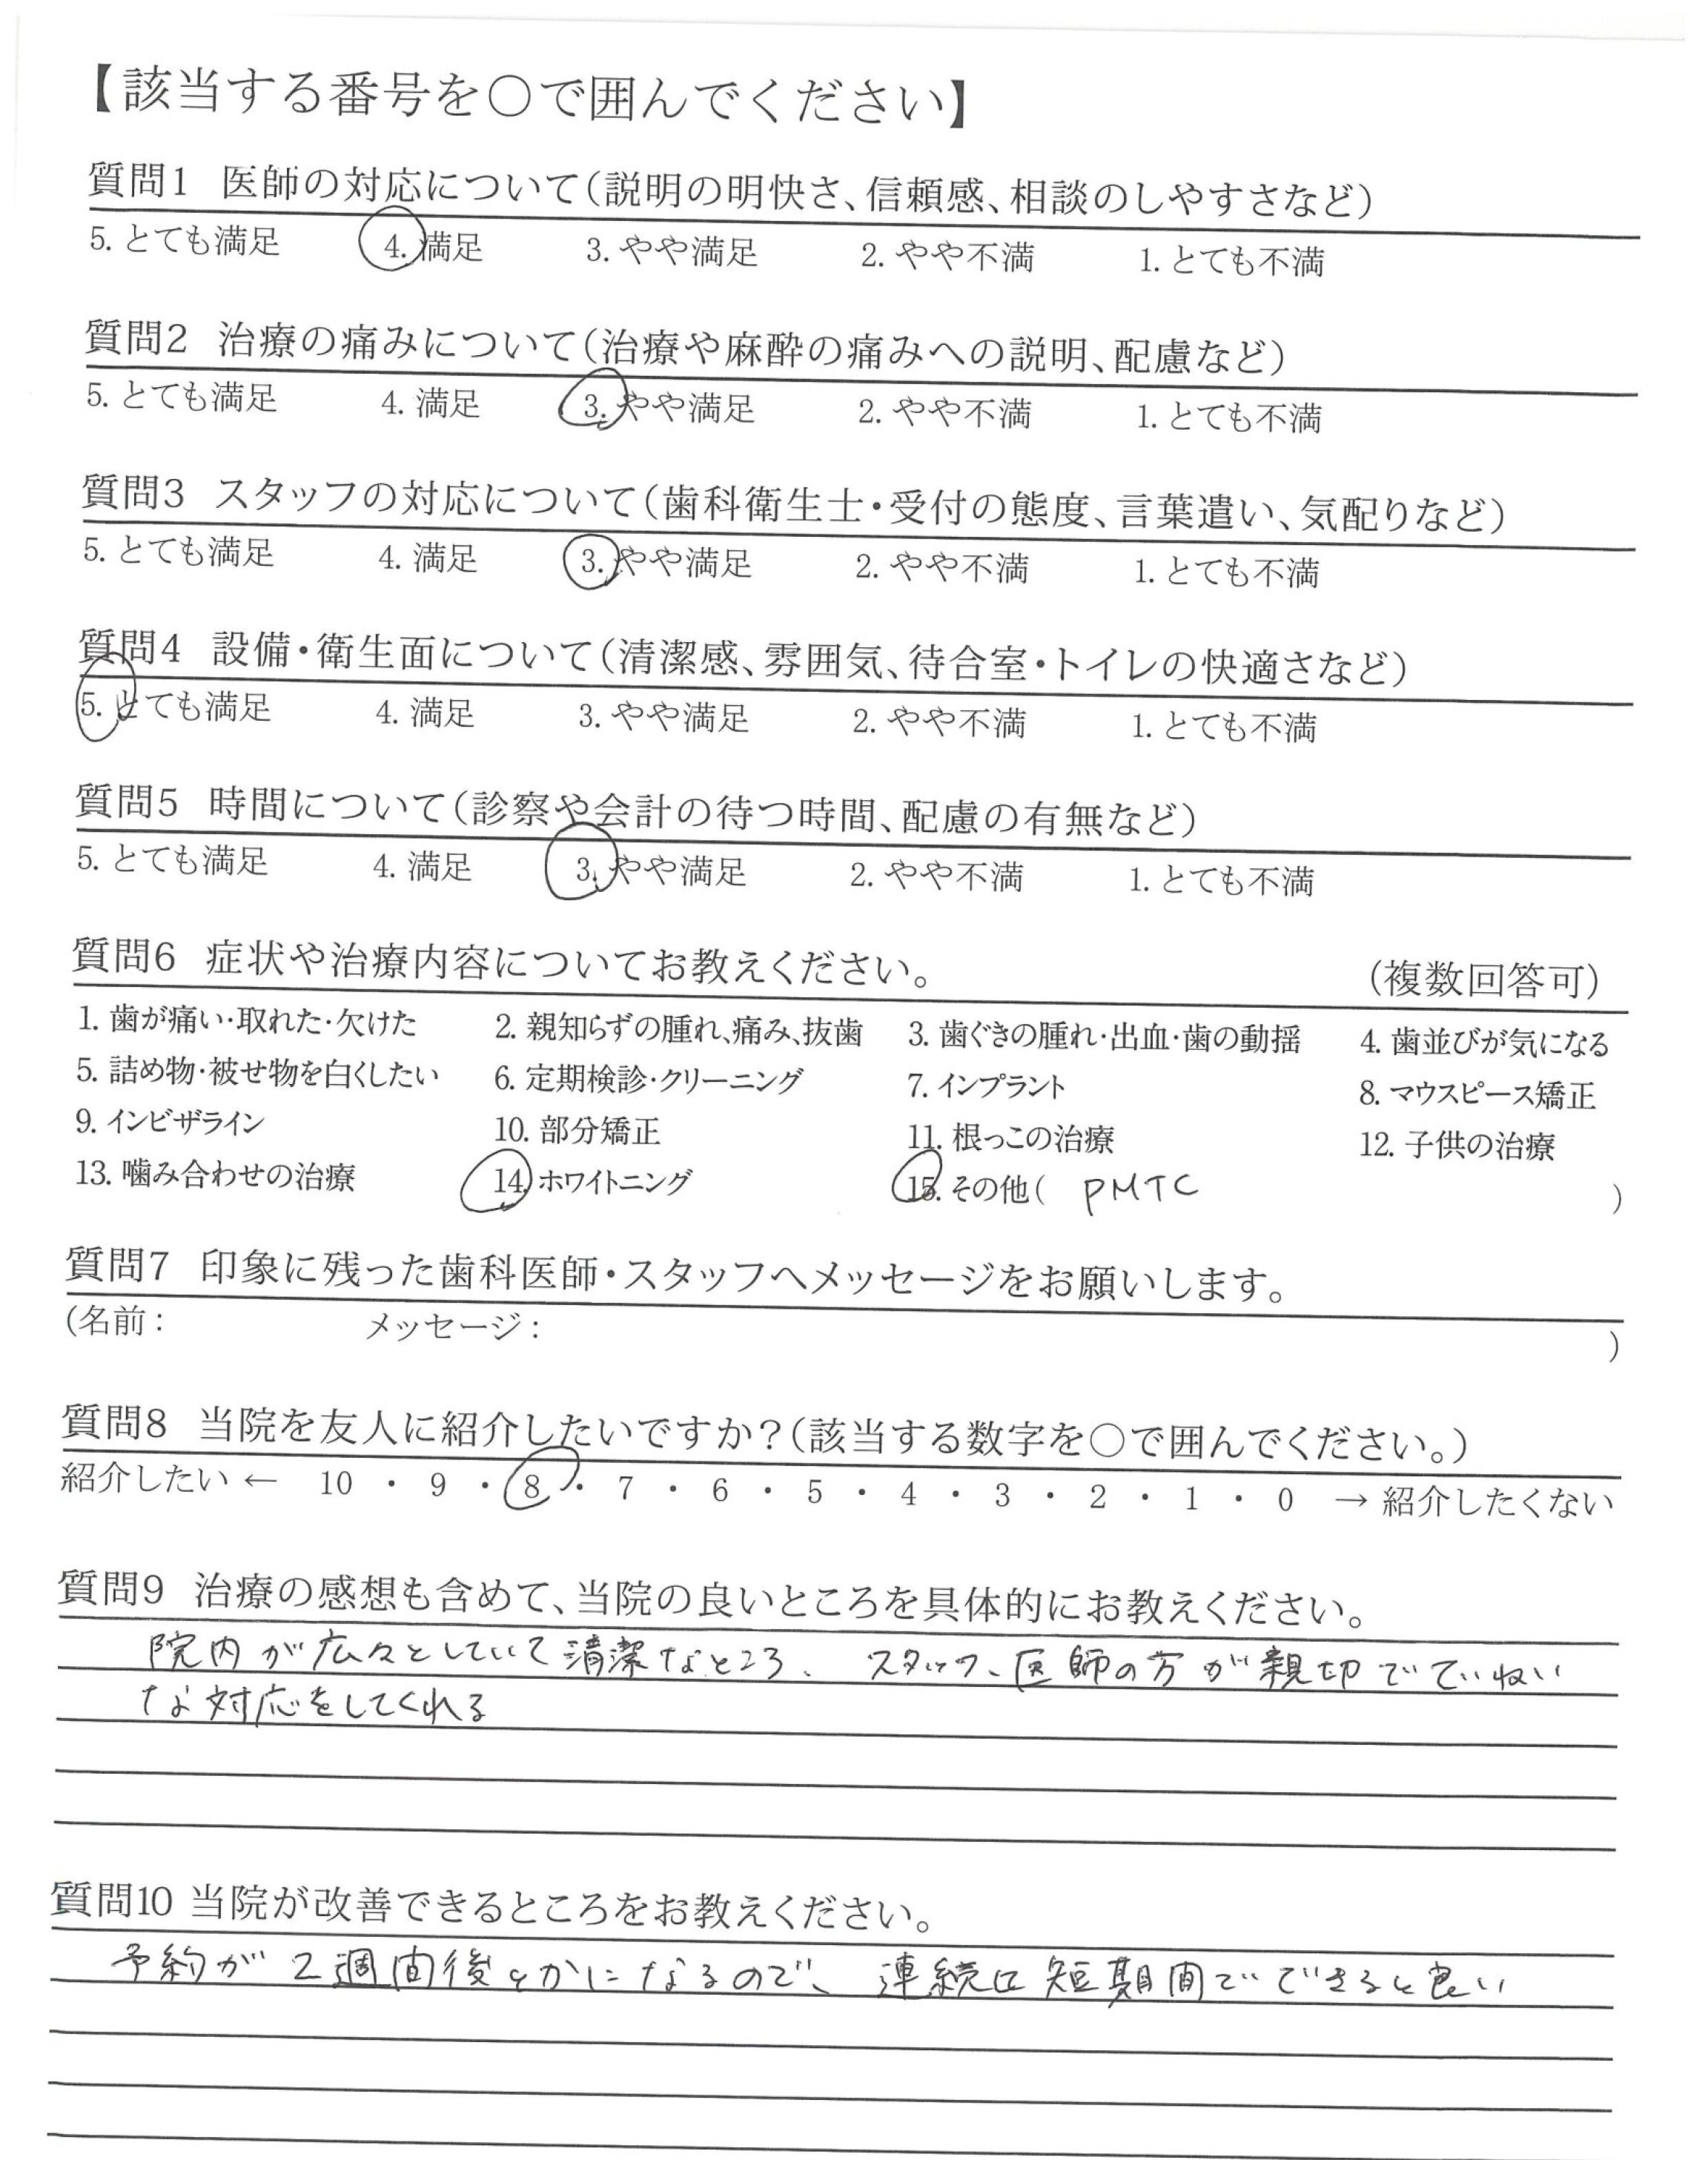 【該当する番号を○で囲んでください】
質問1 医師の対応について(説明の明快さ、信頼感、相談のしやすさなど)
5. とても満足 4. 満足 3. やや満足 2. やや不満 1. とても不満
質問2 治療の痛みについて(治療や麻酔の痛みへの説明、配慮など)
5. とても満足 4. 満足 3. やや満足 2. やや不満 1. とても不満
質問3 スタッフの対応について(歯科衛生士・受付の態度、言葉遣い、気配りなど)
5. とても満足 4. 満足 3. やや満足 2. やや不満 1. とても不満
質問4 設備・衛生面について(清潔感、雰囲気、待合室・トイレの快適さなど)
5. とても満足 4. 満足 3. やや満足 2. やや不満 1. とても不満
質問5 時間について(診察や会計の待つ時間、配慮の有無など)
5. とても満足 4. 満足 3. やや満足 2. やや不満 1. とても不満
質問6 症状や治療内容についてお教えください。 (複数回答可)
1. 歯が痛い・取れた・欠けた 2. 親知らずの腫れ、痛み、抜歯 3. 歯ぐきの腫れ・出血・歯の動揺 4. 歯並びが気になる
5. 詰め物・被せ物を白くしたい 6. 定期検診・クリーニング 7. インプラント 8. マウスピース矯正
9. インビザライン 10. 部分矯正 11. 根っこの治療 12. 子供の治療
13. 噛み合わせの治療 14. ホワイトニング 15. その他( PMTC )
質問7 印象に残った歯科医師・スタッフへメッセージをお願いします。
(名前: メッセージ: )
質問8 当院を友人に紹介したいですか?(該当する数字を○で囲んでください。)
紹介したい ← 10 ・ 9 ・ 8 ・ 7 ・ 6 ・ 5 ・ 4 ・ 3 ・ 2 ・ 1 ・ 0 → 紹介したくない
質問9 治療の感想も含めて、当院の良いところを具体的にお教えください。
院内が広々としていて清潔なところ、 スタッフ、医師の方が親切でていねい
な対応をしてくれる
質問10 当院が改善できるところをお教えください。
予約が2週間後とかになるので、連続に短期間でできると良い